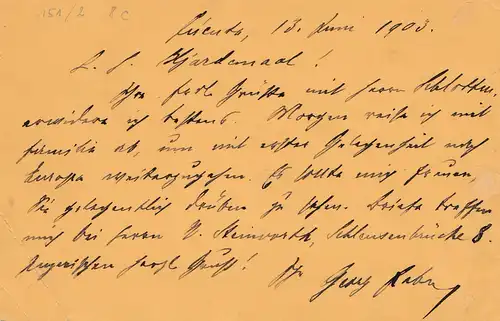 151/2 8 C
Cúcuta, 13. Juni 1903.
L. H. Hjardemaal!
Ihre frdl Grüsse mit Herrn
erwidere ich bestens. Morgen reise ich mit
Familie ab, um mit erster Gelegenheit nach
Europa weiterzugehen. Es sollte mich freuen,
Sie gelegentlich drüben zu sehen. Briefe treffen
mich bei Herrn Schleusenbrücke 8.
herzl Gruss! Ihr Georg